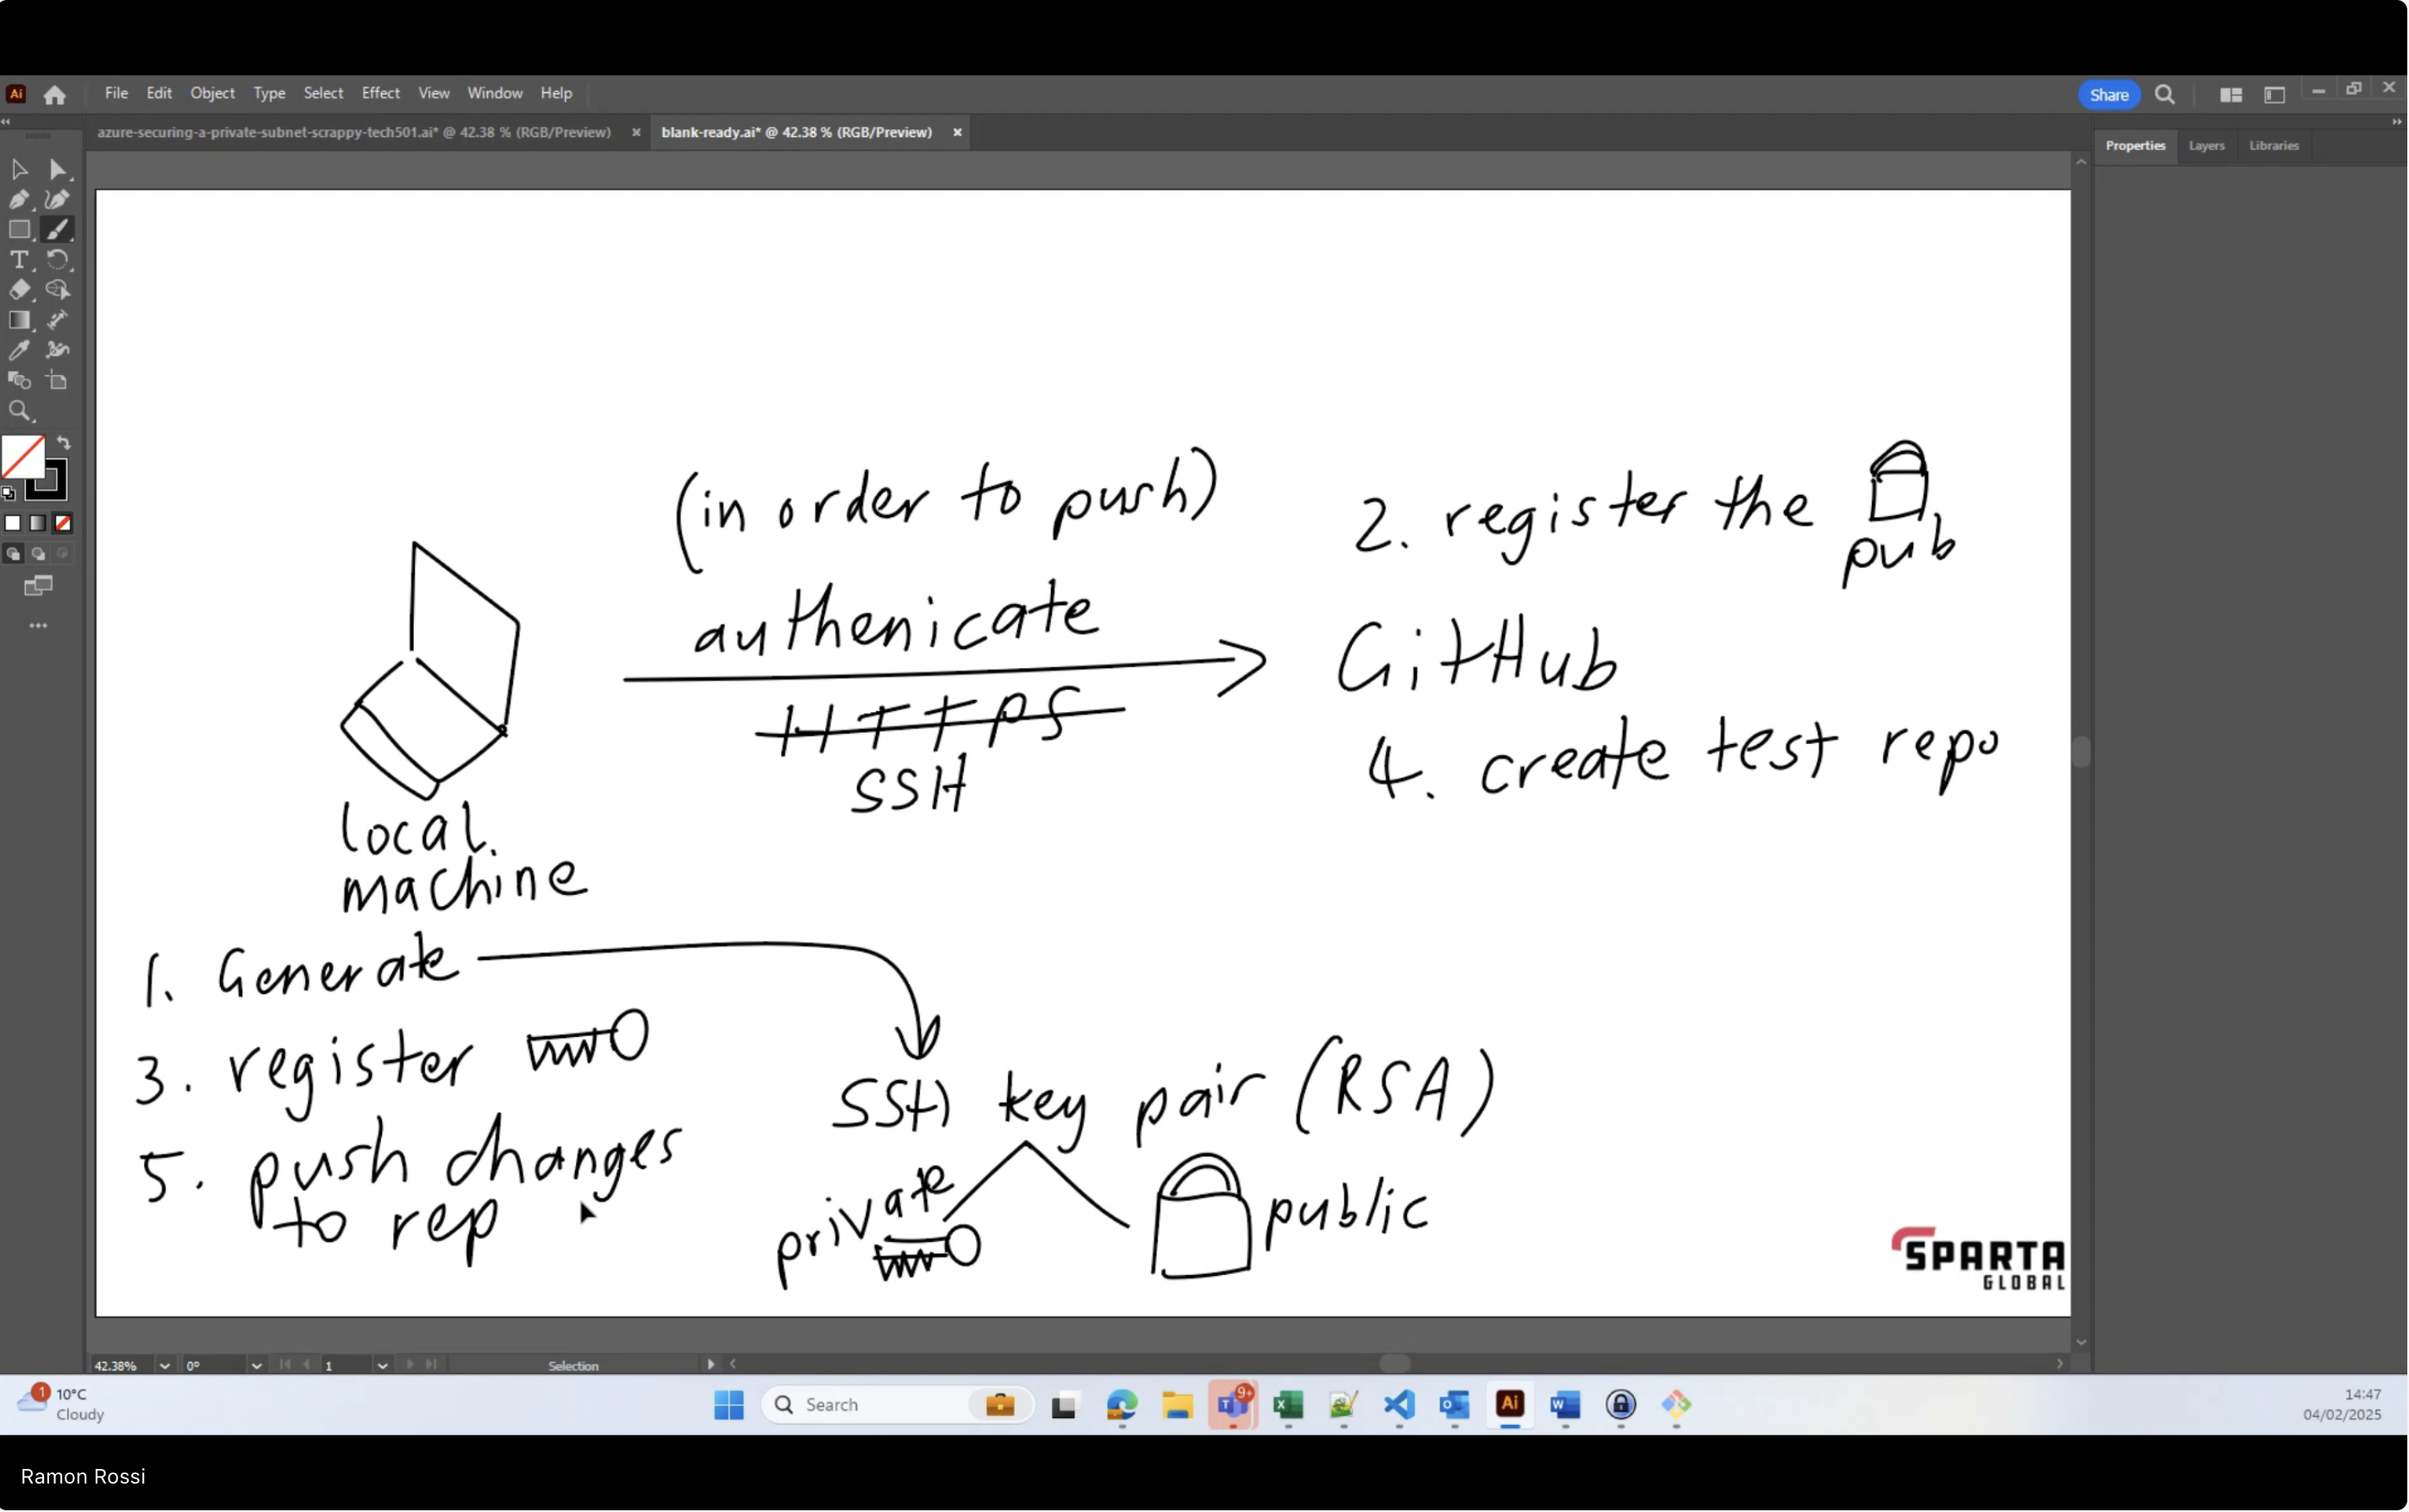 Ai File Edit Object Type Select Effect View Window Help Share
azure-securing-a-private-subnet-scrappy-tech501.ai* @ 42.38 % (RGB/Preview) × blank-ready.ai* @ 42.38 % (RGB/Preview) ×
Properties Layers Libraries
(in order to push)
authenicate
HTTPS
SSH
2. register the
pub
GitHub
4. create test repo
local
machine
1. Generate
3. register
5. push changes
to rep
SSH key pair (RSA)
private
public
SPARTA
GLOBAL
42.38% 0° 1 Selection
1 10°C
Cloudy
Search
9+
Ai
14:47
04/02/2025
Ramon Rossi